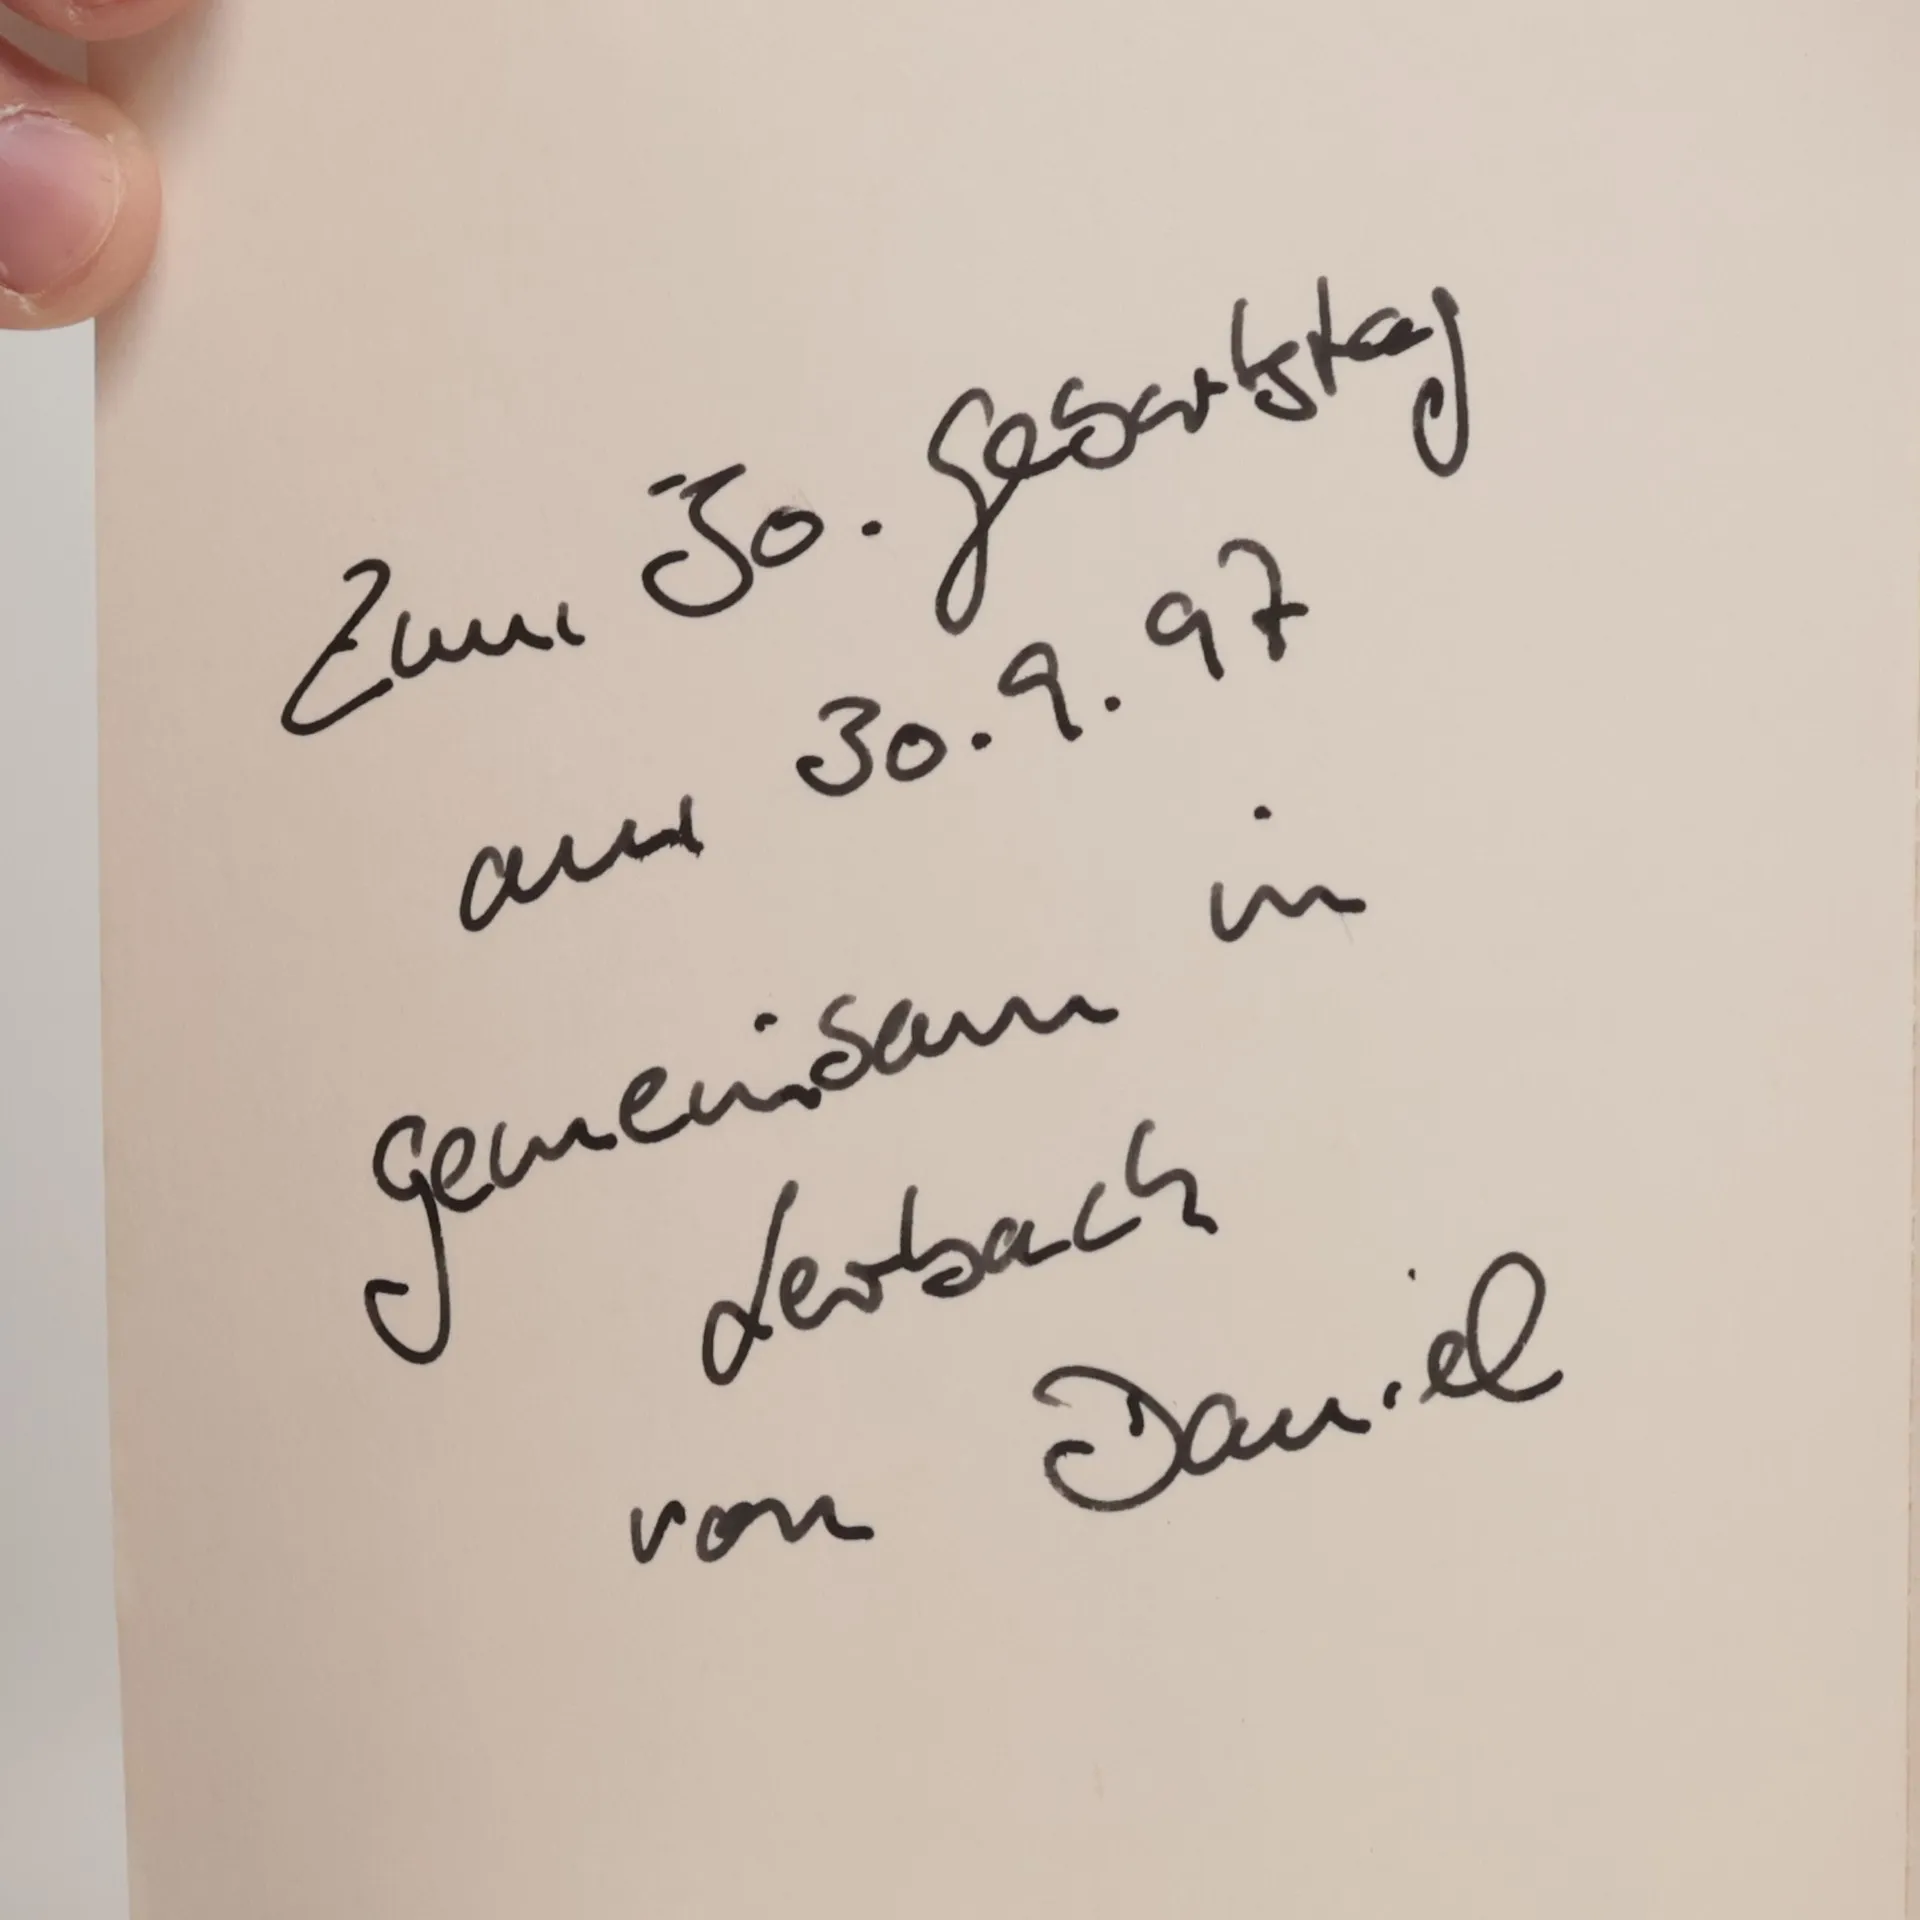 Zum 30. Geburtstag
am 30.9.97
gemeinsam in
Lerbach
von Daniel